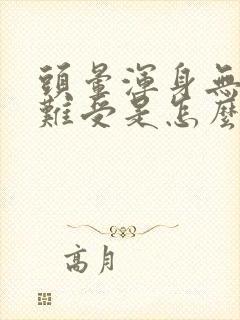 頭暈渾身無
難受是怎麼
高月